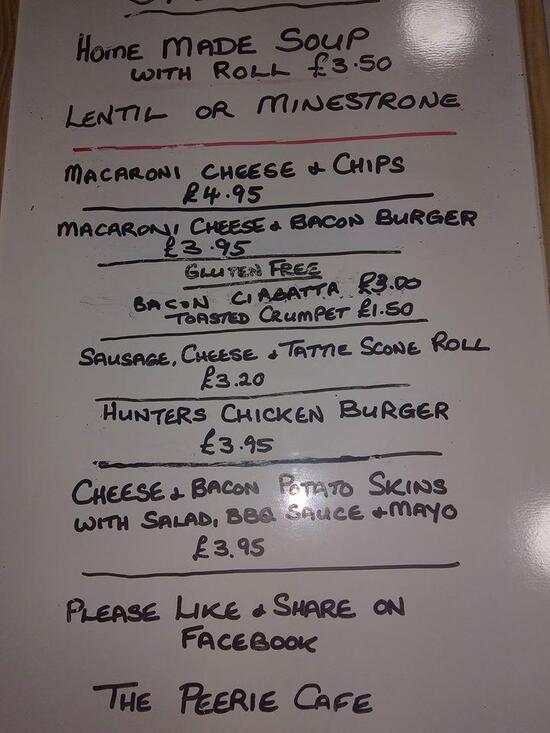 Home MADE SOUP
WITH ROLL £3.50
LENTIL OR MINESTRONE
MACARONI CHEESE & CHIPS
£4.95
MACARONI CHEESE & BACON BURGER
£3.95
GLUTEN FREE
BACON CIABATTA £3.00
TOASTED CRUMPET £1.50
SAUSAGE, CHEESE & TATTIE SCONE ROLL
£3.20
HUNTERS CHICKEN BURGER
£3.95
CHEESE & BACON POTATO SKINS
WITH SALAD, BBQ SAUCE & MAYO
£3.95
PLEASE LIKE & SHARE ON
FACEBOOK
THE PEERIE CAFE